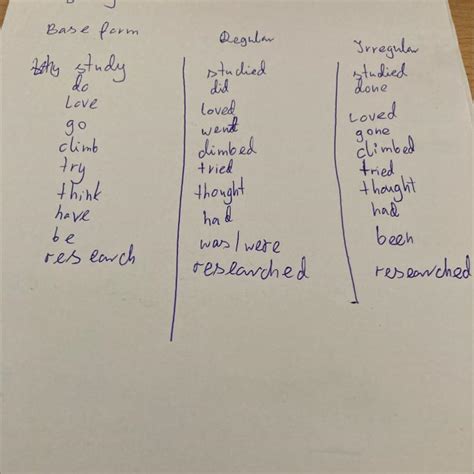 Base form Regular Irregular
study studied studied
do did done
Love loved Loved
go went gone
climb climbed climbed
try tried tried
think thought thought
have had had
be was/were been
research researched researched